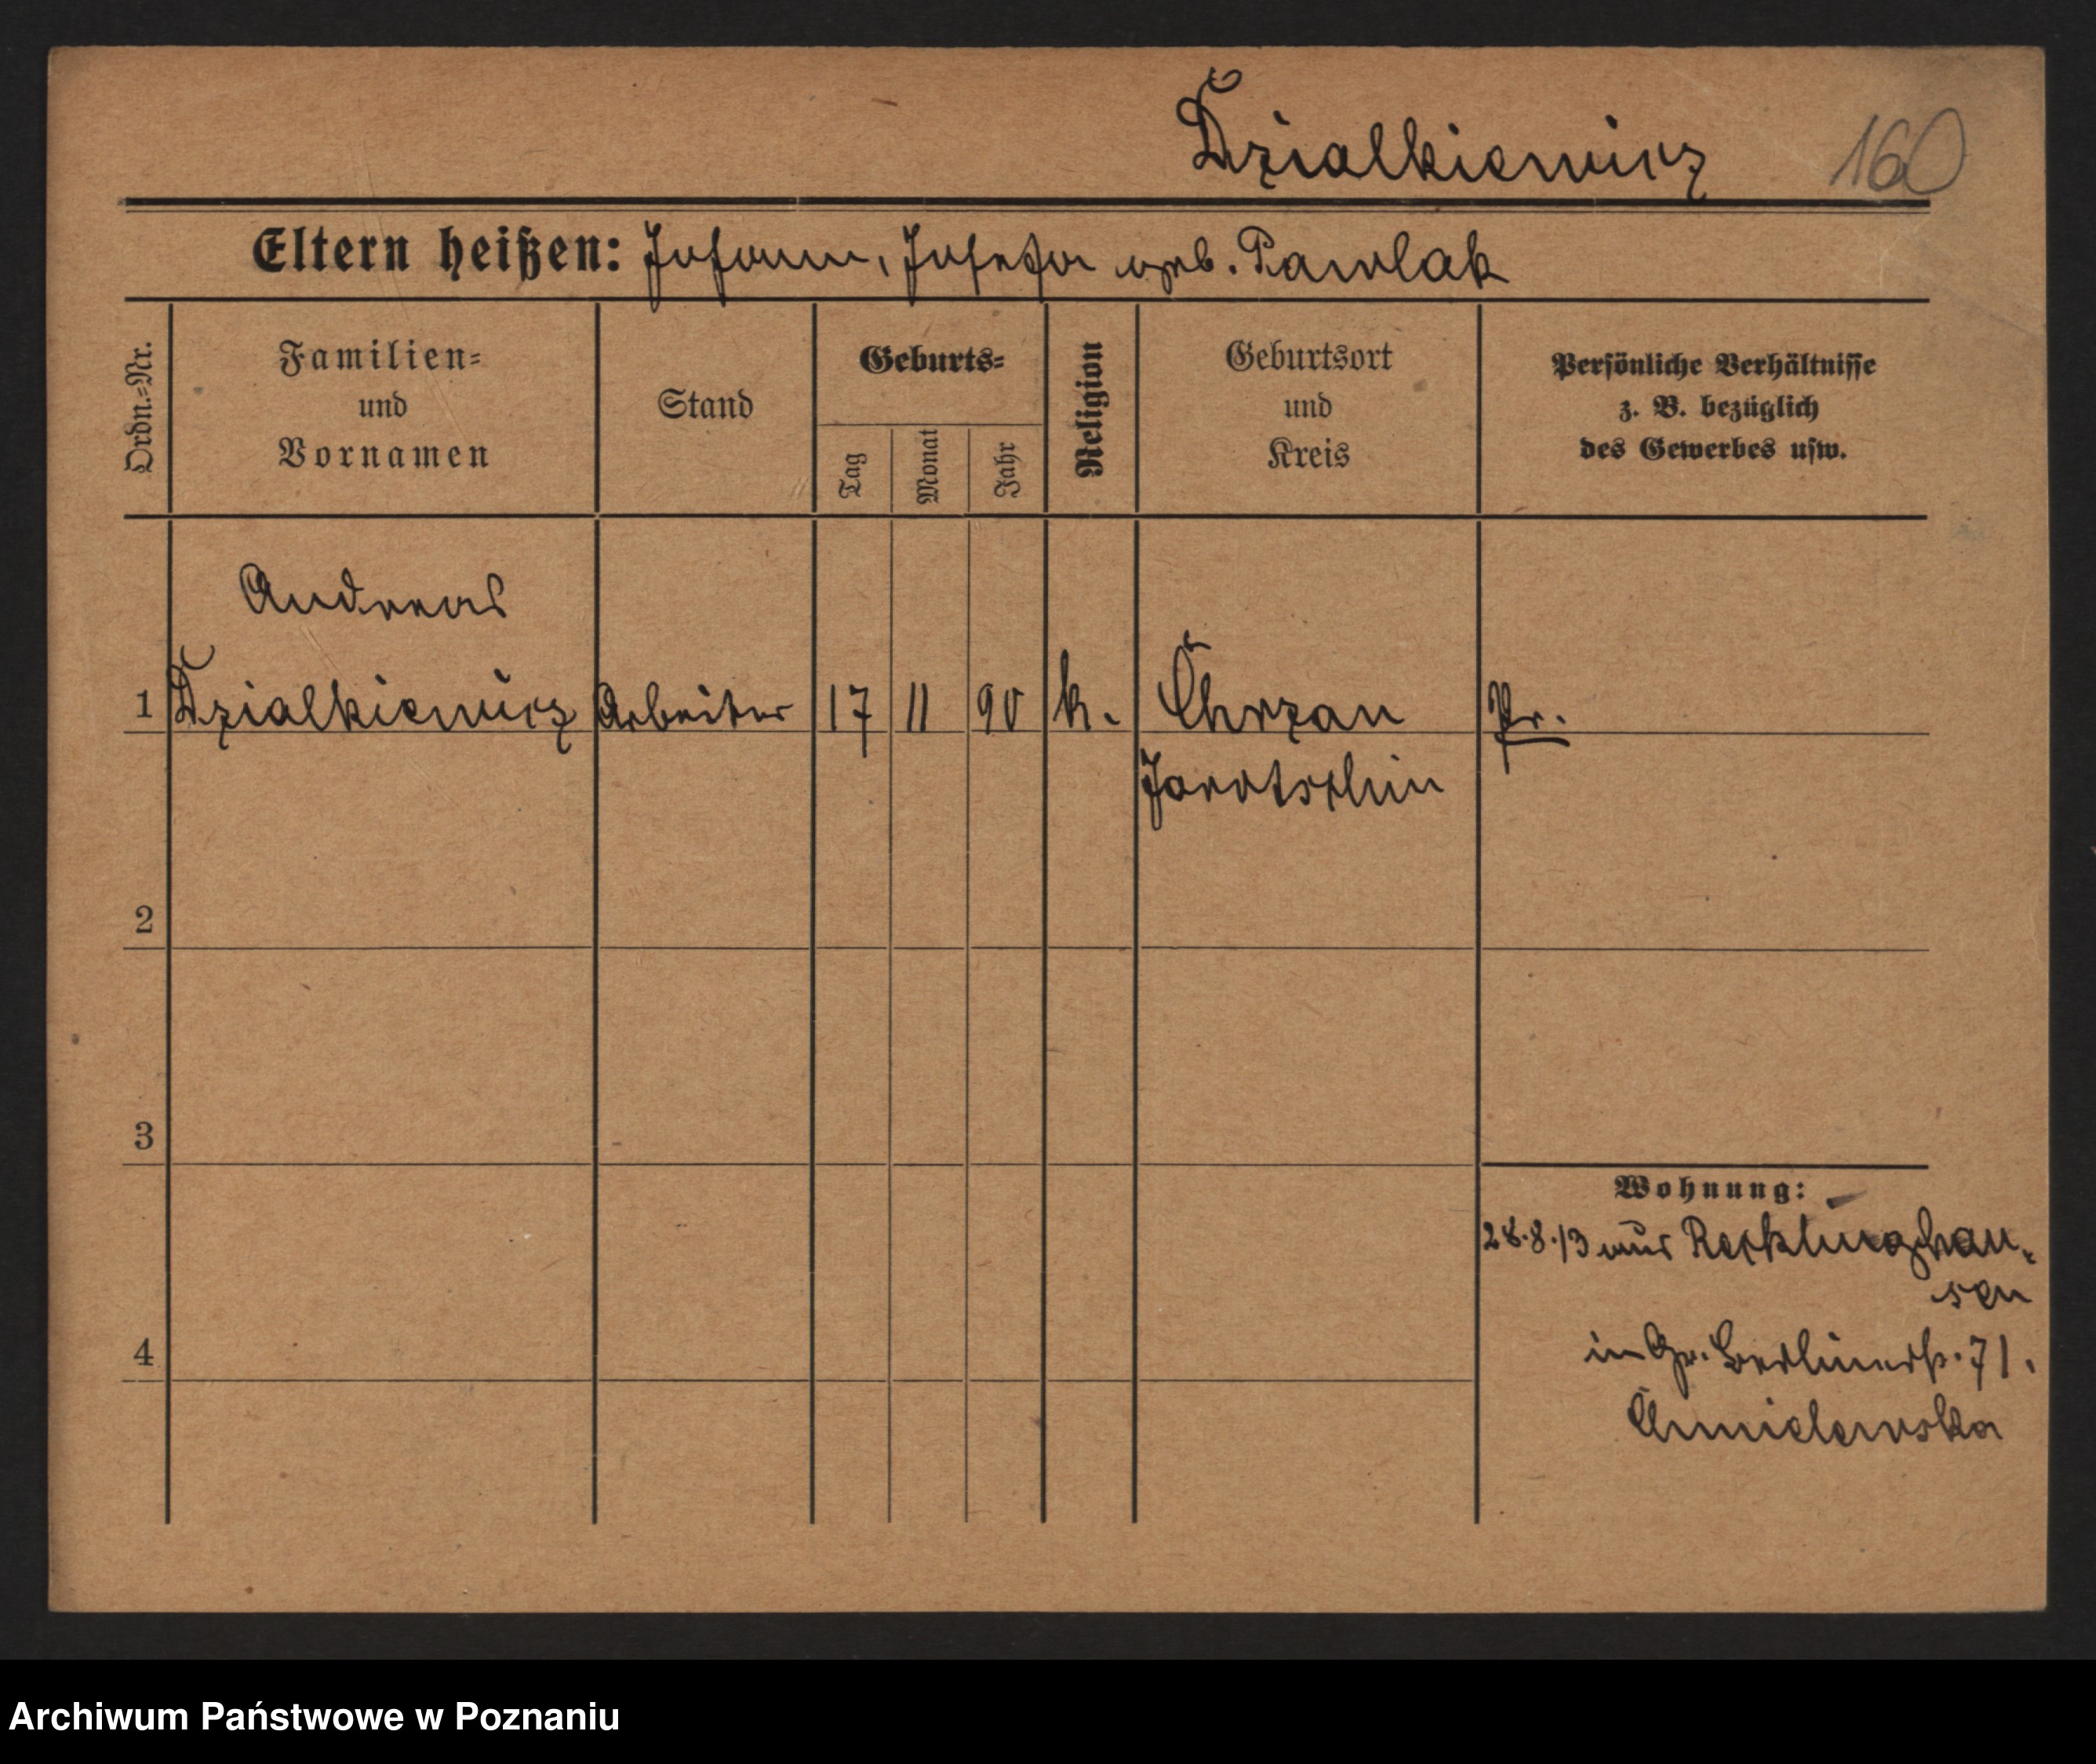 Dzialkiewicz 160
Eltern heißen: Johann, Josefa geb. Pawlak
Ordn.=Nr. Familien= und Vornamen Stand Geburts= Tag Monat Jahr Religion Geburtsort und Kreis Persönliche Verhältnisse z. B. bezüglich des Gewerbes usw.
Andreas
1 Dzialkiewicz Arbeiter 17 11 90 k. Chrzan Pr.
Jarotschin
2
3
Wohnung:
28.8.13 aus Recklinghau-
sen
in Gr. Berlinerstr. 71.
4
Chmielewska
Archiwum Państwowe w Poznaniu